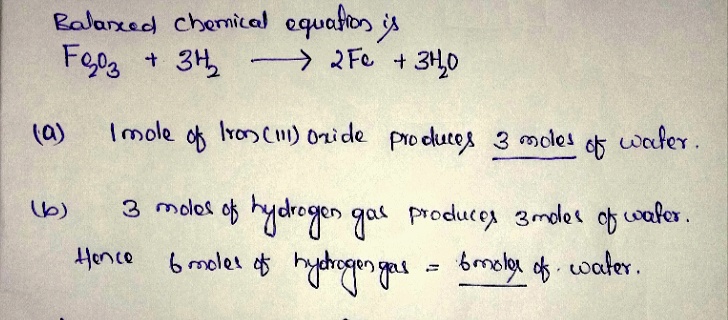 Balanced chemical equation is
Fe₂O₃ + 3H₂ ⟶ 2Fe + 3H₂O
(a) 1 mole of Iron(III) oxide produces 3 moles of water.
(b) 3 moles of hydrogen gas produces 3 moles of water.
Hence 6 moles of hydrogen gas = 6 moles of water.